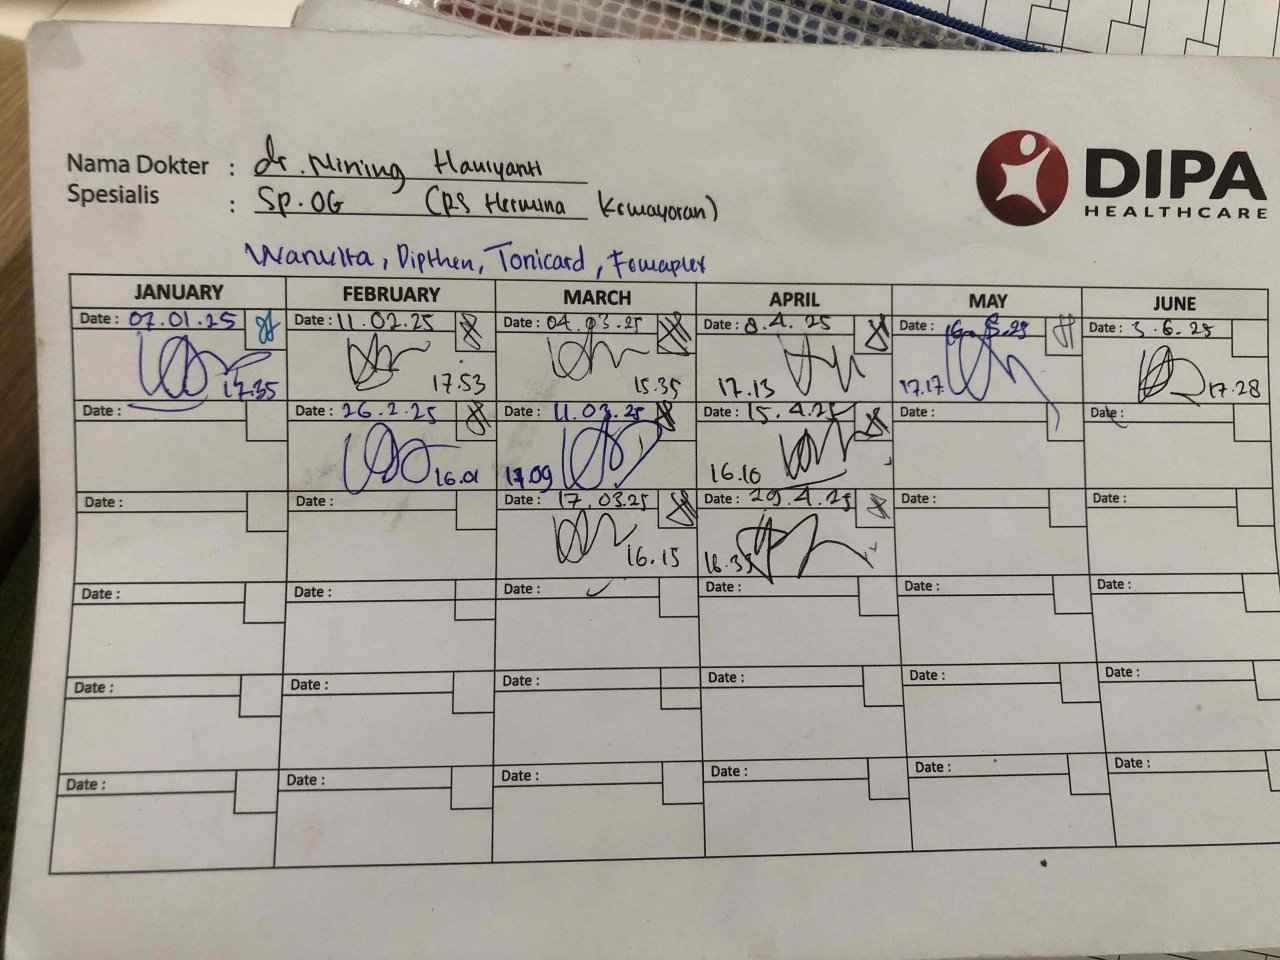 Nama Dokter : dr. Mining Haniyanti
DIPA
HEALTHCARE
Spesialis : Sp.OG (RS Hermina Kemayoran)
Wanvita, Dipthen, Tonicard, Femaplex
JANUARY FEBRUARY MARCH APRIL MAY JUNE
Date : 07.01.25 Date : 11.02.25 Date : 04.03.25 Date : 8.4.25 Date : Date : 3.6.25
17.35 17.53 15.35 17.13 17.17 17.28
Date : Date : 26.2.25 Date : 11.03.25 Date : 15.4.25 Date : Date :
16.01 17.09 16.10
Date : Date : Date : 17.03.25 Date : 29.4.25 Date : Date :
16.15 16.35
Date : Date : Date : Date : Date : Date :
Date : Date : Date : Date : Date : Date :
Date : Date : Date : Date : Date : Date :